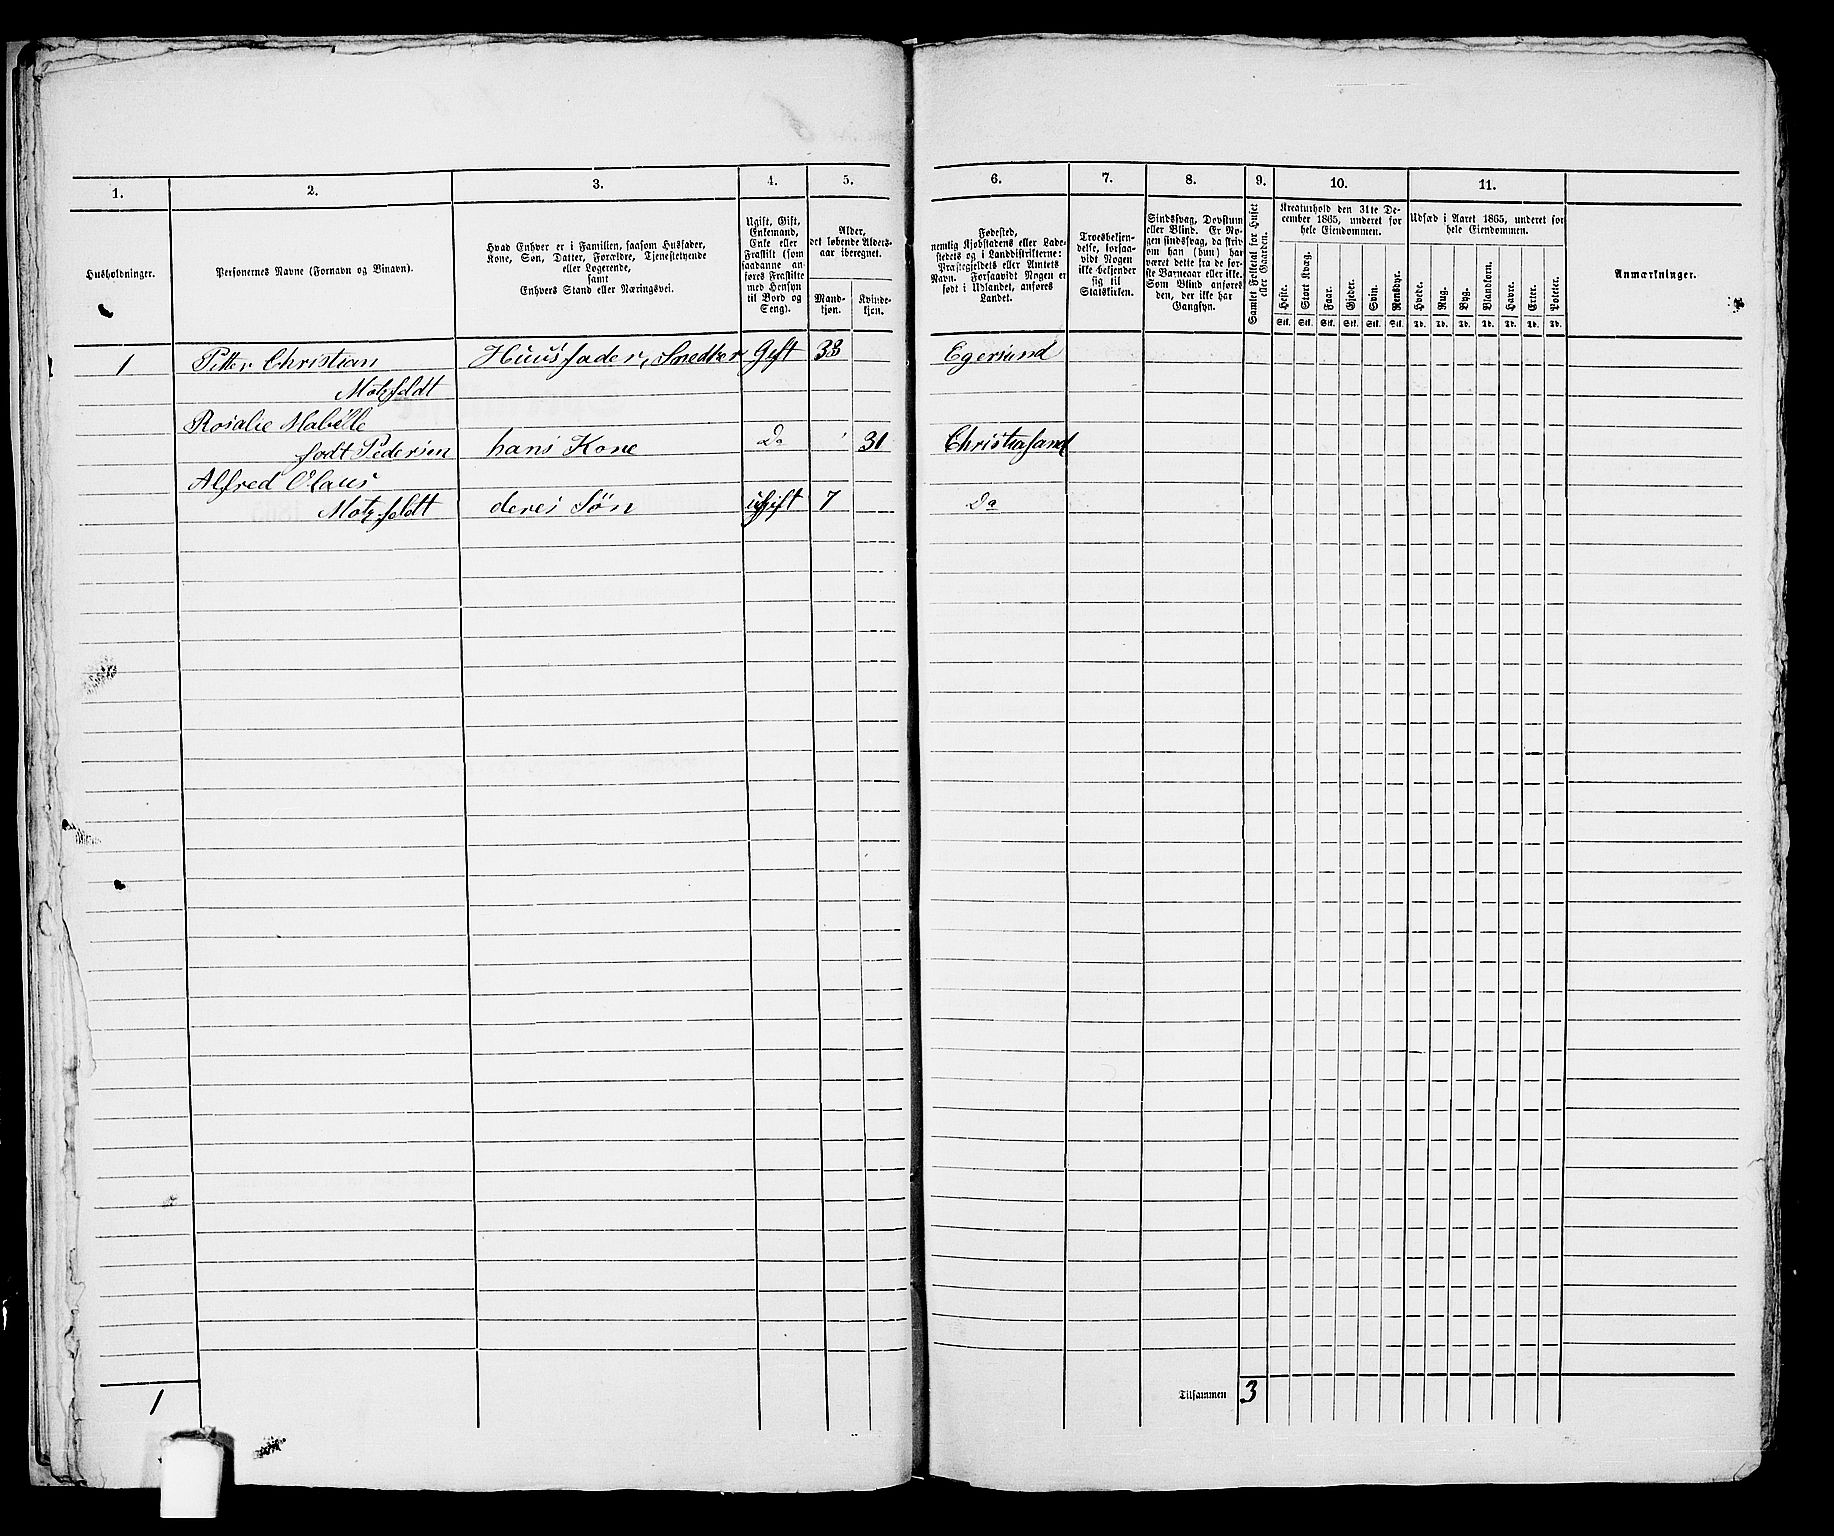 1.
2.
3.
4.
5.
Husholdninger.
Personernes Navne (Fornavn og Binavn).
Hvad Enhver er i Familien, saasom Husfader,
Kone, Søn, Datter, Forældre, Tjenestetyende
eller Logerende,
samt
Enhvers Stand eller Næringsvei.
Ugift, Gift,
Enkemand,
Enke eller
Fraskilt (som
saadanne an-
føres Fraskilte
med Hensyn
til Bord og
Seng).
Alder,
det løbende Alders-
aar iberegnet.
Mand-
kjøn.
Kvinde-
kjøn.
1 Pitter Christian Huusfader, Snedker Gift 33
Motzfeldt
Rosalie Mabelle
født Pedersen hans Kone Do 31
Alfred Olaus
Motzfeldt deres Søn ugift 7
1
6.
7.
8.
9.
10.
11.
Fødested,
nemlig Kjøbstadens eller Lade-
stedets og i Landdistrikterne:
Præstegjeldets eller Amtets
Navn. Forsaavidt Nogen er
født i Udlandet, anføres
Landet.
Troesbekjen-
delse, forsaa-
vidt Nogen
ikke bekjender
sig til
Statskirken.
Sindssvag, Døvstum
eller Blind. Er No-
gen sindssvag, da skriv
om han (hun) har
været dette fra de før-
ste Barneaar eller ikke.
Som Blind anføres
den, der ikke har
Gangsyn.
Samlet Folketal for Huset
eller Gaarden.
Kreaturhold den 31te De-
cember 1865, underet for
hele Eiendommen.
Heste.
Stort Kvæg.
Faar.
Gjeder.
Svin.
Rensdyr.
Stk. Stk. Stk. Stk. Stk. Stk.
Udsæd i Aaret 1865, underet for
hele Eiendommen.
Hvede.
Rug.
Byg.
Blandkorn.
Havre.
Erter.
Poteter.
Td. Td. Td. Td. Td. Td. Td.
Anmærkninger.
Egersund
Christiasand
Do
Tilsammen 3